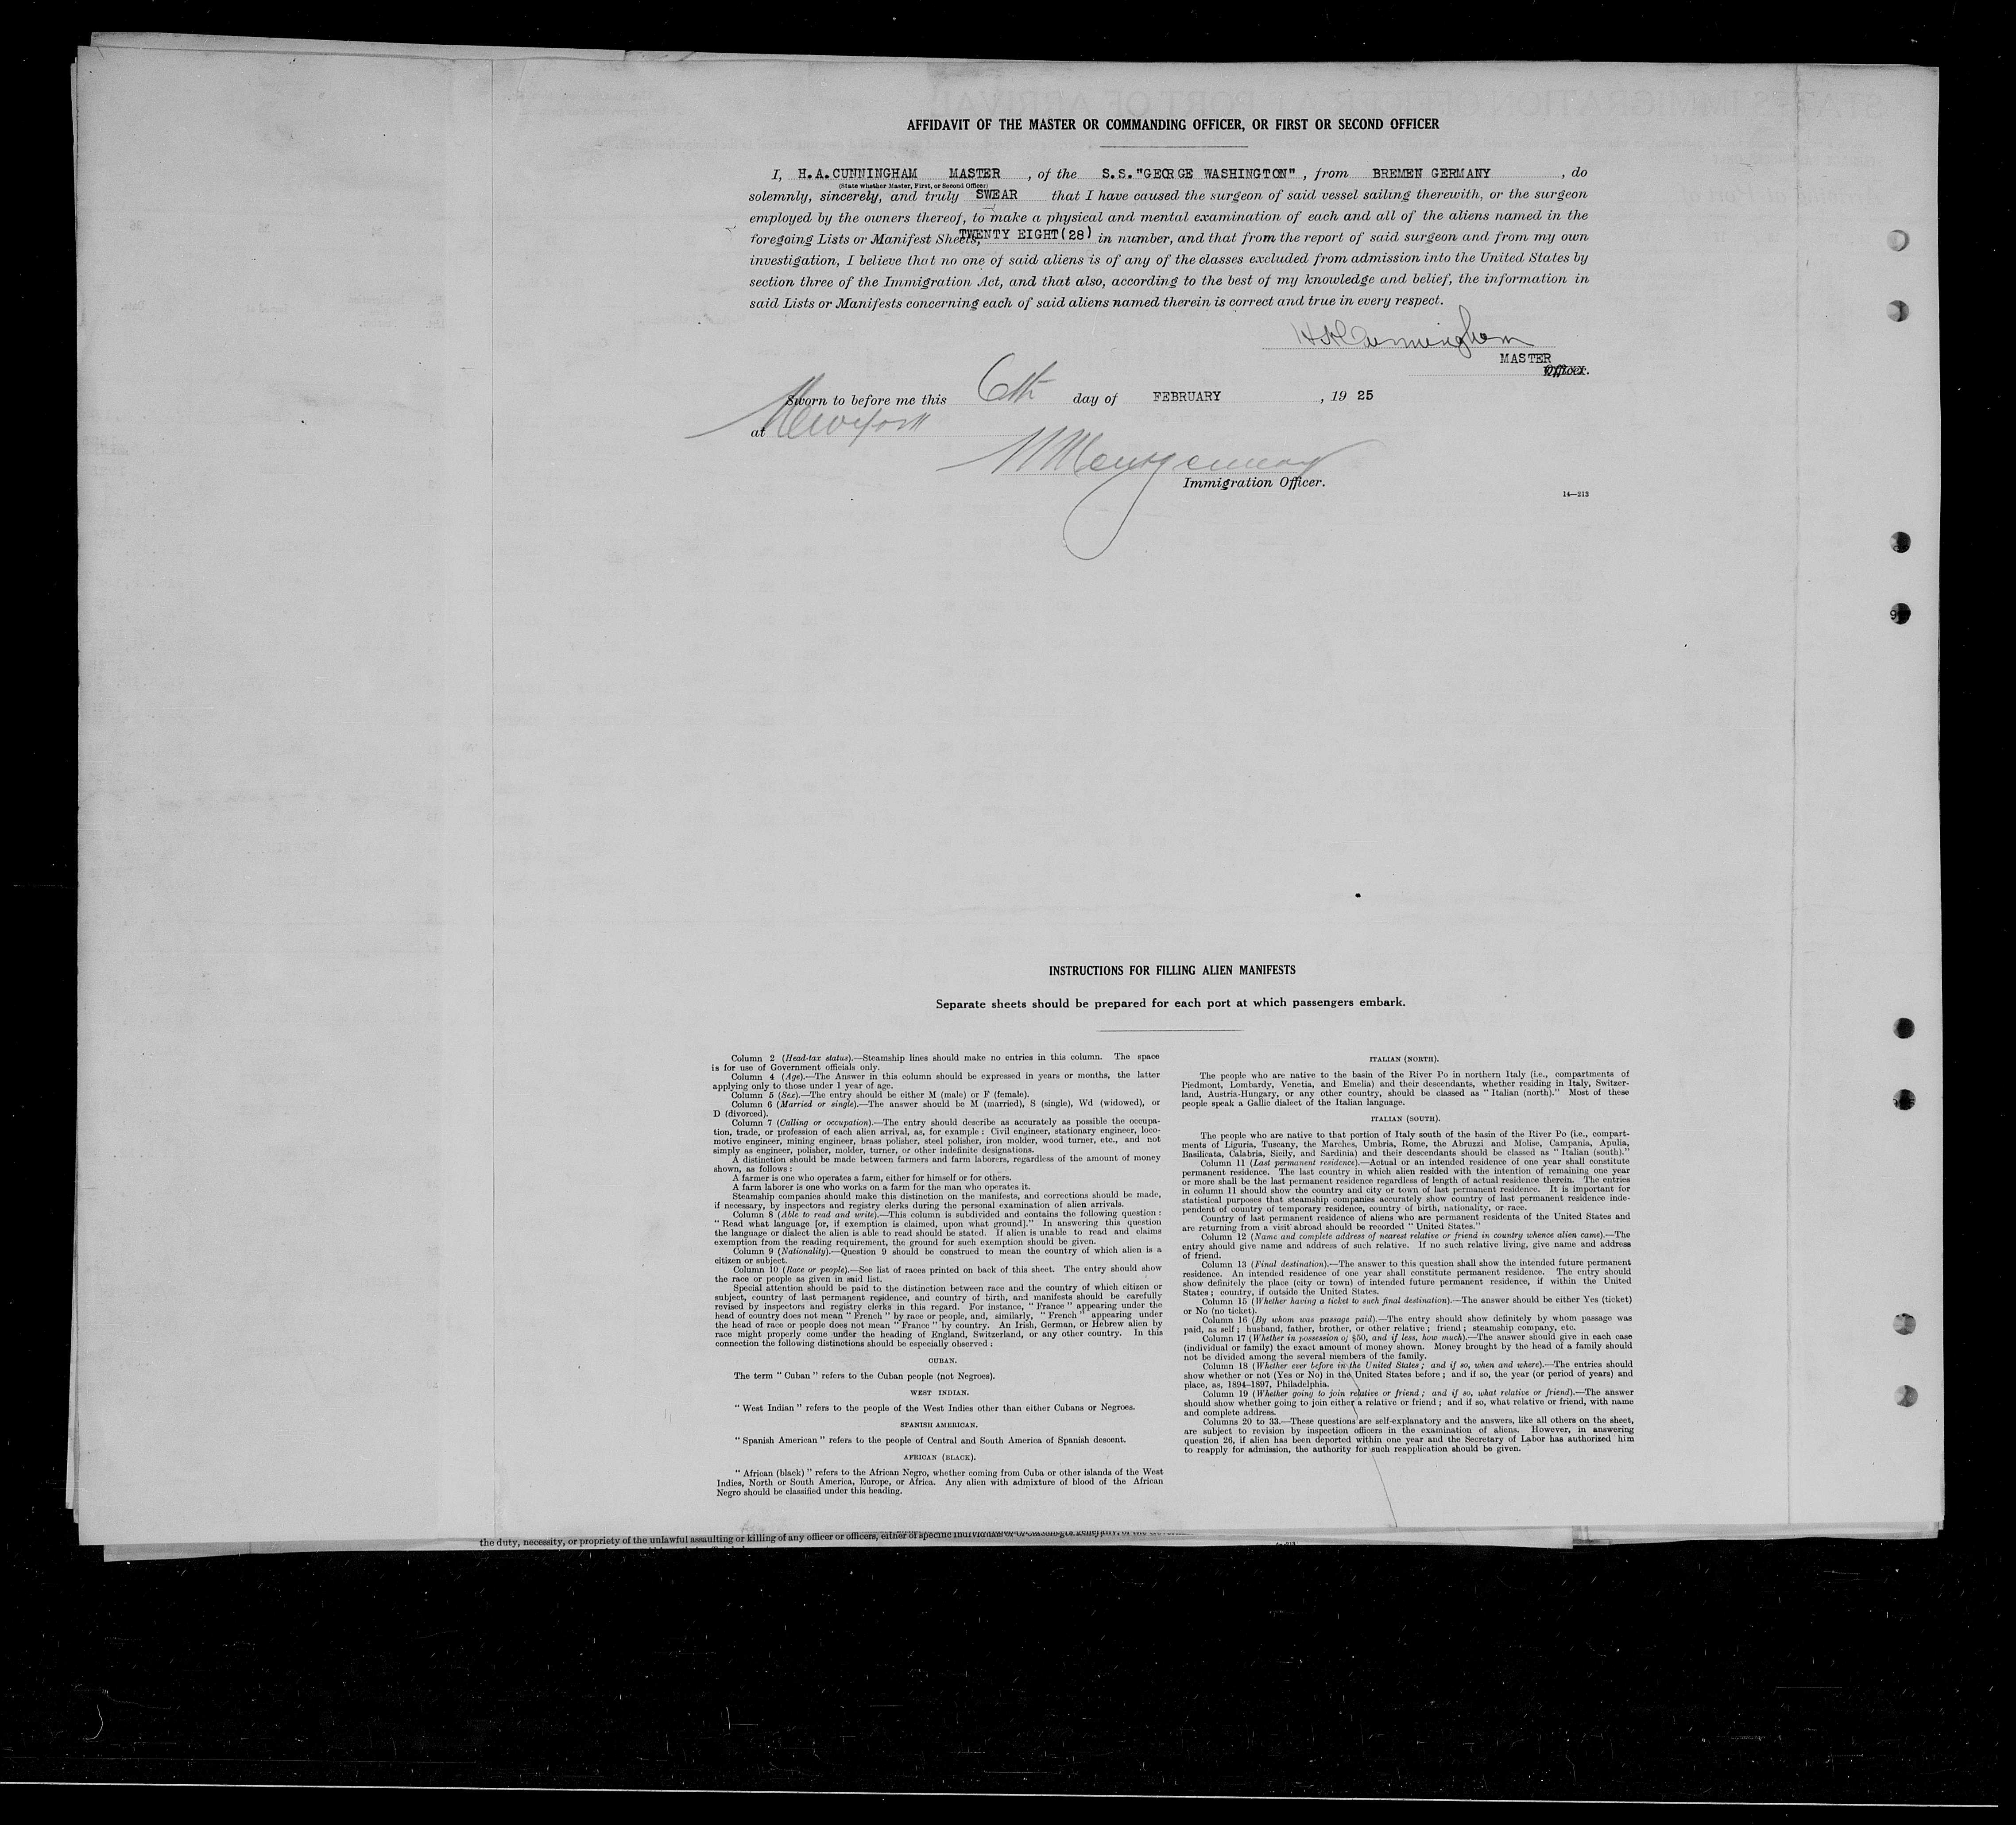 AFFIDAVIT OF THE MASTER OR COMMANDING OFFICER, OR FIRST OR SECOND OFFICER
I, H.A.CUNNINGHAM MASTER, of the S.S."GEORGE WASHINGTON", from BREMEN GERMANY, do
(State whether Master, First, or Second Officer)
solemnly, sincerely, and truly SWEAR that I have caused the surgeon of said vessel sailing therewith, or the surgeon
employed by the owners thereof, to make a physical and mental examination of each and all of the aliens named in the
foregoing Lists or Manifest Sheets, TWENTY EIGHT(28) in number, and that from the report of said surgeon and from my own
investigation, I believe that no one of said aliens is of any of the classes excluded from admission into the United States by
section three of the Immigration Act, and that also, according to the best of my knowledge and belief, the information in
said Lists or Manifests concerning each of said aliens named therein is correct and true in every respect.
H A Cunningham
MASTER
Officer.
Sworn to before me this 6th day of FEBRUARY, 19 25
at New York
Montgomery
Immigration Officer.
14—213
INSTRUCTIONS FOR FILLING ALIEN MANIFESTS
Separate sheets should be prepared for each port at which passengers embark.
Column 2 (Head-tax status).—Steamship lines should make no entries in this column. The space
is for use of Government officials only.
Column 4 (Age).—The Answer in this column should be expressed in years or months, the latter
applying only to those under 1 year of age.
Column 5 (Sex).—The entry should be either M (male) or F (female).
Column 6 (Married or single).—The answer should be M (married), S (single), Wd (widowed), or
D (divorced).
Column 7 (Calling or occupation).—The entry should describe as accurately as possible the occupa-
tion, trade, or profession of each alien arrival, as, for example: Civil engineer, stationary engineer, loco-
motive engineer, mining engineer, brass polisher, steel polisher, iron molder, wood turner, etc., and not
simply as engineer, polisher, molder, turner, or other indefinite designations.
A distinction should be made between farmers and farm laborers, regardless of the amount of money
shown, as follows:
A farmer is one who operates a farm, either for himself or for others.
A farm laborer is one who works on a farm for the man who operates it.
Steamship companies should make this distinction on the manifests, and corrections should be made,
if necessary, by inspectors and registry clerks during the personal examination of alien arrivals.
Column 8 (Able to read and write).—This column is subdivided and contains the following question:
"Read what language [or, if exemption is claimed, upon what ground]." In answering this question
the language or dialect the alien is able to read should be stated. If alien is unable to read and claims
exemption from the reading requirement, the ground for such exemption should be given.
Column 9 (Nationality).—Question 9 should be construed to mean the country of which alien is a
citizen or subject.
Column 10 (Race or people).—See list of races printed on back of this sheet. The entry should show
the race or people as given in said list.
Special attention should be paid to the distinction between race and the country of which citizen or
subject, country of last permanent residence, and country of birth, and manifests should be carefully
revised by inspectors and registry clerks in this regard. For instance, "France" appearing under the
head of country does not mean "French" by race or people, and, similarly, "French" appearing under
the head of race or people does not mean "France" by country. An Irish, German, or Hebrew alien by
race might properly come under the heading of England, Switzerland, or any other country. In this
connection the following distinctions should be especially observed:
CUBAN.
The term "Cuban" refers to the Cuban people (not Negroes).
WEST INDIAN.
"West Indian" refers to the people of the West Indies other than either Cubans or Negroes.
SPANISH AMERICAN.
"Spanish American" refers to the people of Central and South America of Spanish descent.
AFRICAN (BLACK).
"African (black)" refers to the African Negro, whether coming from Cuba or other islands of the West
Indies, North or South America, Europe, or Africa. Any alien with admixture of blood of the African
Negro should be classified under this heading.
ITALIAN (NORTH).
The people who are native to the basin of the River Po in northern Italy (i.e., compartments of
Piedmont, Lombardy, Venetia, and Emelia) and their descendants, whether residing in Italy, Switzer-
land, Austria-Hungary, or any other country, should be classed as "Italian (north)." Most of these
people speak a Gallic dialect of the Italian language.
ITALIAN (SOUTH).
The people who are native to that portion of Italy south of the basin of the River Po (i.e., compart-
ments of Liguria, Tuscany, the Marches, Umbria, Rome, the Abruzzi and Molise, Campania, Apulia,
Basilicata, Calabria, Sicily, and Sardinia) and their descendants should be classed as "Italian (south)."
Column 11 (Last permanent residence).—Actual or an intended residence of one year shall constitute
permanent residence. The last country in which alien resided with the intention of remaining one year
or more shall be the last permanent residence regardless of length of actual residence therein. The entries
in column 11 should show the country and city or town of last permanent residence. It is important for
statistical purposes that steamship companies accurately show country of last permanent residence inde-
pendent of country of temporary residence, country of birth, nationality, or race.
Country of last permanent residence of aliens who are permanent residents of the United States and
are returning from a visit abroad should be recorded "United States."
Column 12 (Name and complete address of nearest relative or friend in country whence alien came).—The
entry should give name and address of such relative. If no such relative living, give name and address
of friend.
Column 13 (Final destination).—The answer to this question shall show the intended future permanent
residence. An intended residence of one year shall constitute permanent residence. The entry should
show definitely the place (city or town) of intended future permanent residence, if within the United
States; country, if outside the United States.
Column 15 (Whether having a ticket to such final destination).—The answer should be either Yes (ticket)
or No (no ticket).
Column 16 (By whom was passage paid).—The entry should show definitely by whom passage was
paid, as self; husband, father, brother, or other relative; friend; steamship company, etc.
Column 17 (Whether in possession of $50, and if less, how much).—The answer should give in each case
(individual or family) the exact amount of money shown. Money brought by the head of a family should
not be divided among the several members of the family.
Column 18 (Whether ever before in the United States; and if so, when and where).—The entries should
show whether or not (Yes or No) in the United States before; and if so, the year (or period of years) and
place, as, 1894–1897, Philadelphia.
Column 19 (Whether going to join relative or friend; and if so, what relative or friend).—The answer
should show whether going to join either a relative or friend; and if so, what relative or friend, with name
and complete address.
Columns 20 to 33.—These questions are self-explanatory and the answers, like all others on the sheet,
are subject to revision by inspection officers in the examination of aliens. However, in answering
question 26, if alien has been deported within one year and the Secretary of Labor has authorized him
to reapply for admission, the authority for such reapplication should be given.
the duty, necessity, or propriety of the unlawful assaulting or killing of any officer or officers, either of specific individuals or of